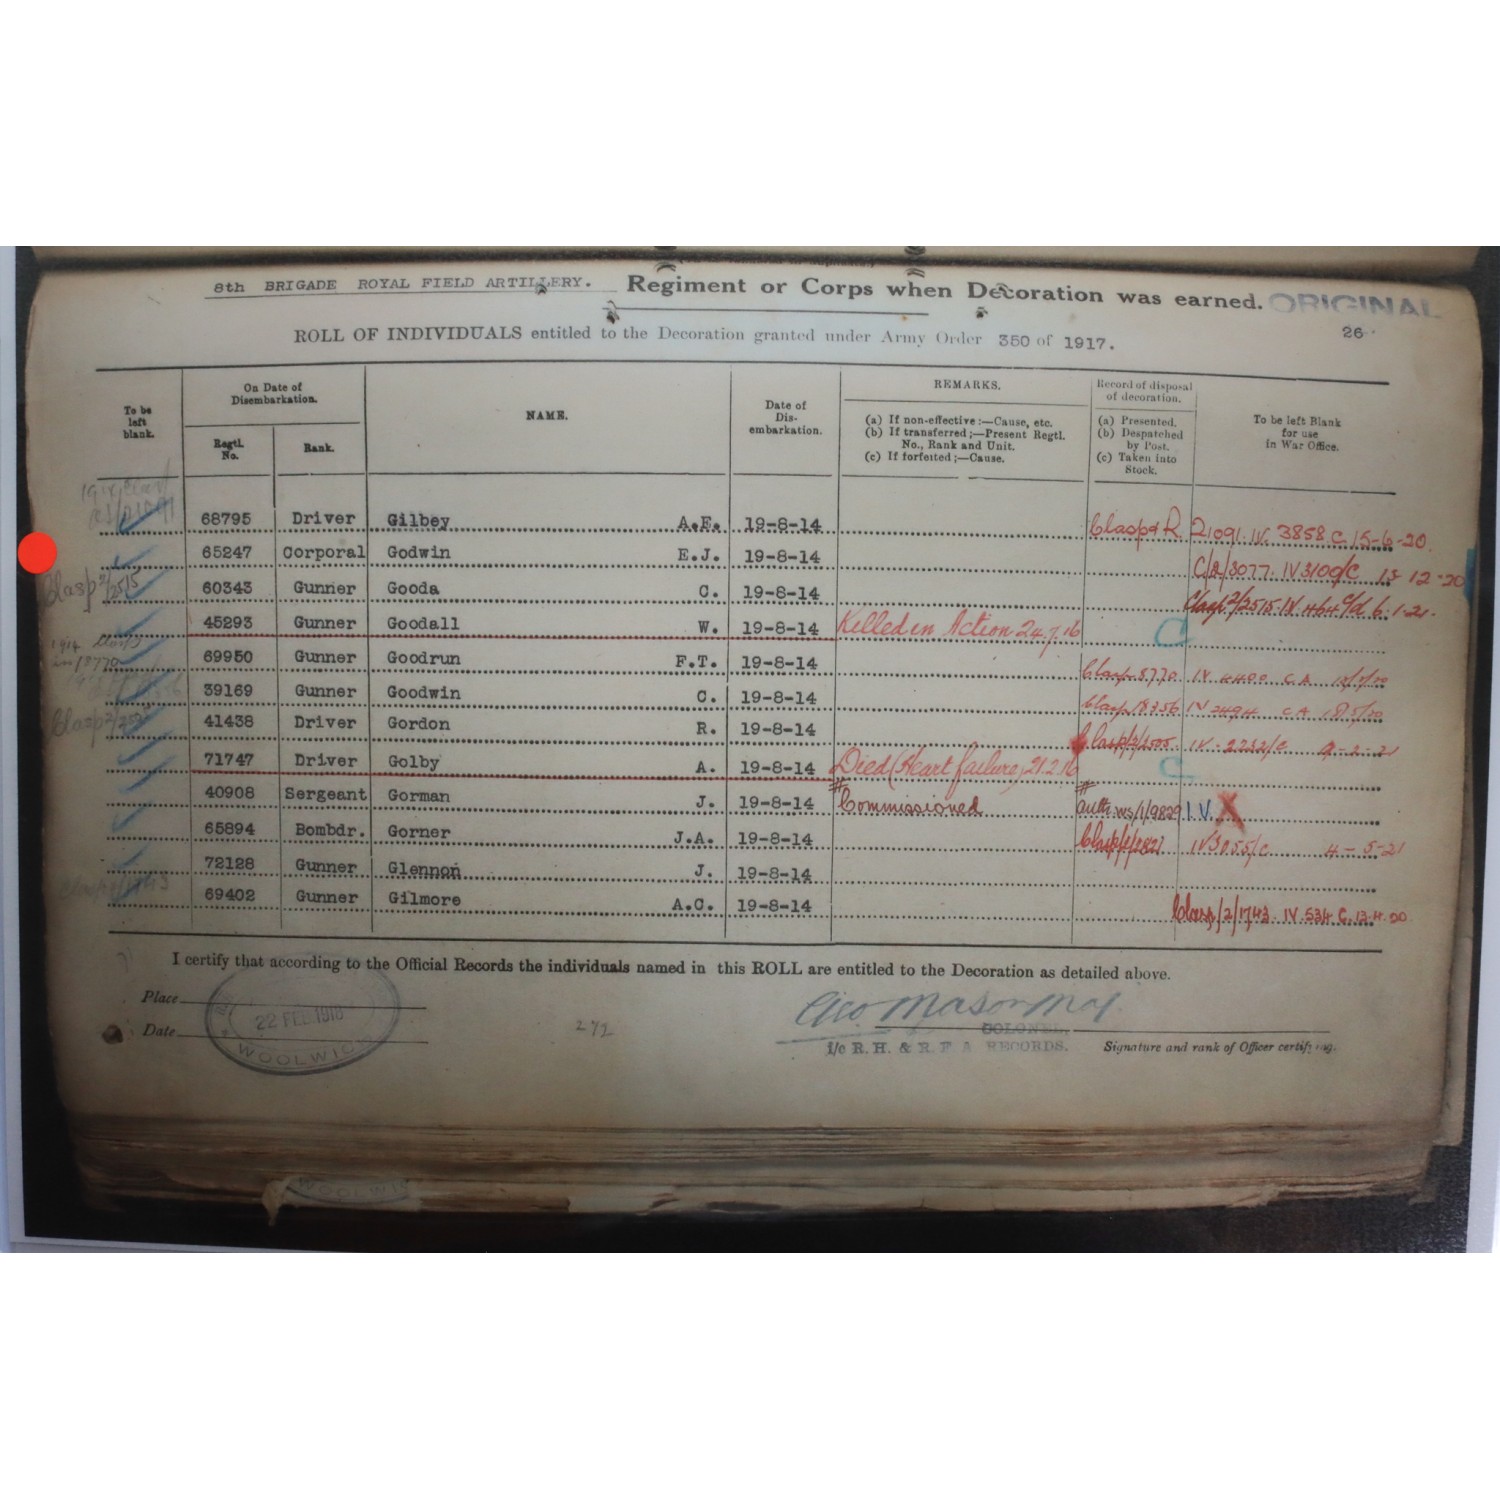 8th BRIGADE ROYAL FIELD ARTILLERY. Regiment or Corps when Decoration was earned. ORIGINAL
ROLL OF INDIVIDUALS entitled to the Decoration granted under Army Order 350 of 1917. 26
To be left blank.
On Date of Disembarkation.
Regtl. No.
Rank.
NAME.
Date of Disembarkation.
REMARKS.
(a) If non-effective:—Cause, etc.
(b) If transferred;—Present Regtl. No., Rank and Unit.
(c) If forfeited;—Cause.
Record of disposal of decoration.
(a) Presented.
(b) Despatched by Post.
(c) Taken into Stock.
To be left Blank for use in War Office.
68795 Driver Gilbey A.E. 19-8-14 Clasp & R 21091. IV. 3858. C 15-6-20.
65247 Corporal Godwin E.J. 19-8-14 C/2/3077. IV 3100/C 12-20
Clasp 2/2515 60343 Gunner Gooda C. 19-8-14 Clasp 2/2515 IV 464 6.1-21.
45293 Gunner Goodall W. 19-8-14 Killed in Action 24.7.16 C
69950 Gunner Goodrun F.T. 19-8-14 Clasp 8770. IV 4400 C A
39169 Gunner Goodwin C. 19-8-14 Clasp 18356 IV 2494 C A
41438 Driver Gordon R. 19-8-14 Clasp IV 2732/C 9-2-21
71747 Driver Golby A. 19-8-14 Died (Heart failure) 21.2.16 C
40908 Sergeant Gorman J. 19-8-14 # Commissioned # auth ws/1/9829 I.V. X
65894 Bombdr. Gorner J.A. 19-8-14 IV 3055/C 4-5-21
72128 Gunner Glennon J. 19-8-14
69402 Gunner Gilmore A.C. 19-8-14 Clasp/2/1743. IV. 534. C. 12.4.20
I certify that according to the Official Records the individuals named in this ROLL are entitled to the Decoration as detailed above.
Place
Date
22 FEB 1918
WOOLWICH
272
Geo Mason Maj
COLONEL,
i/c R. H. & R. F. A RECORDS. Signature and rank of Officer certifying.
WOOLWI